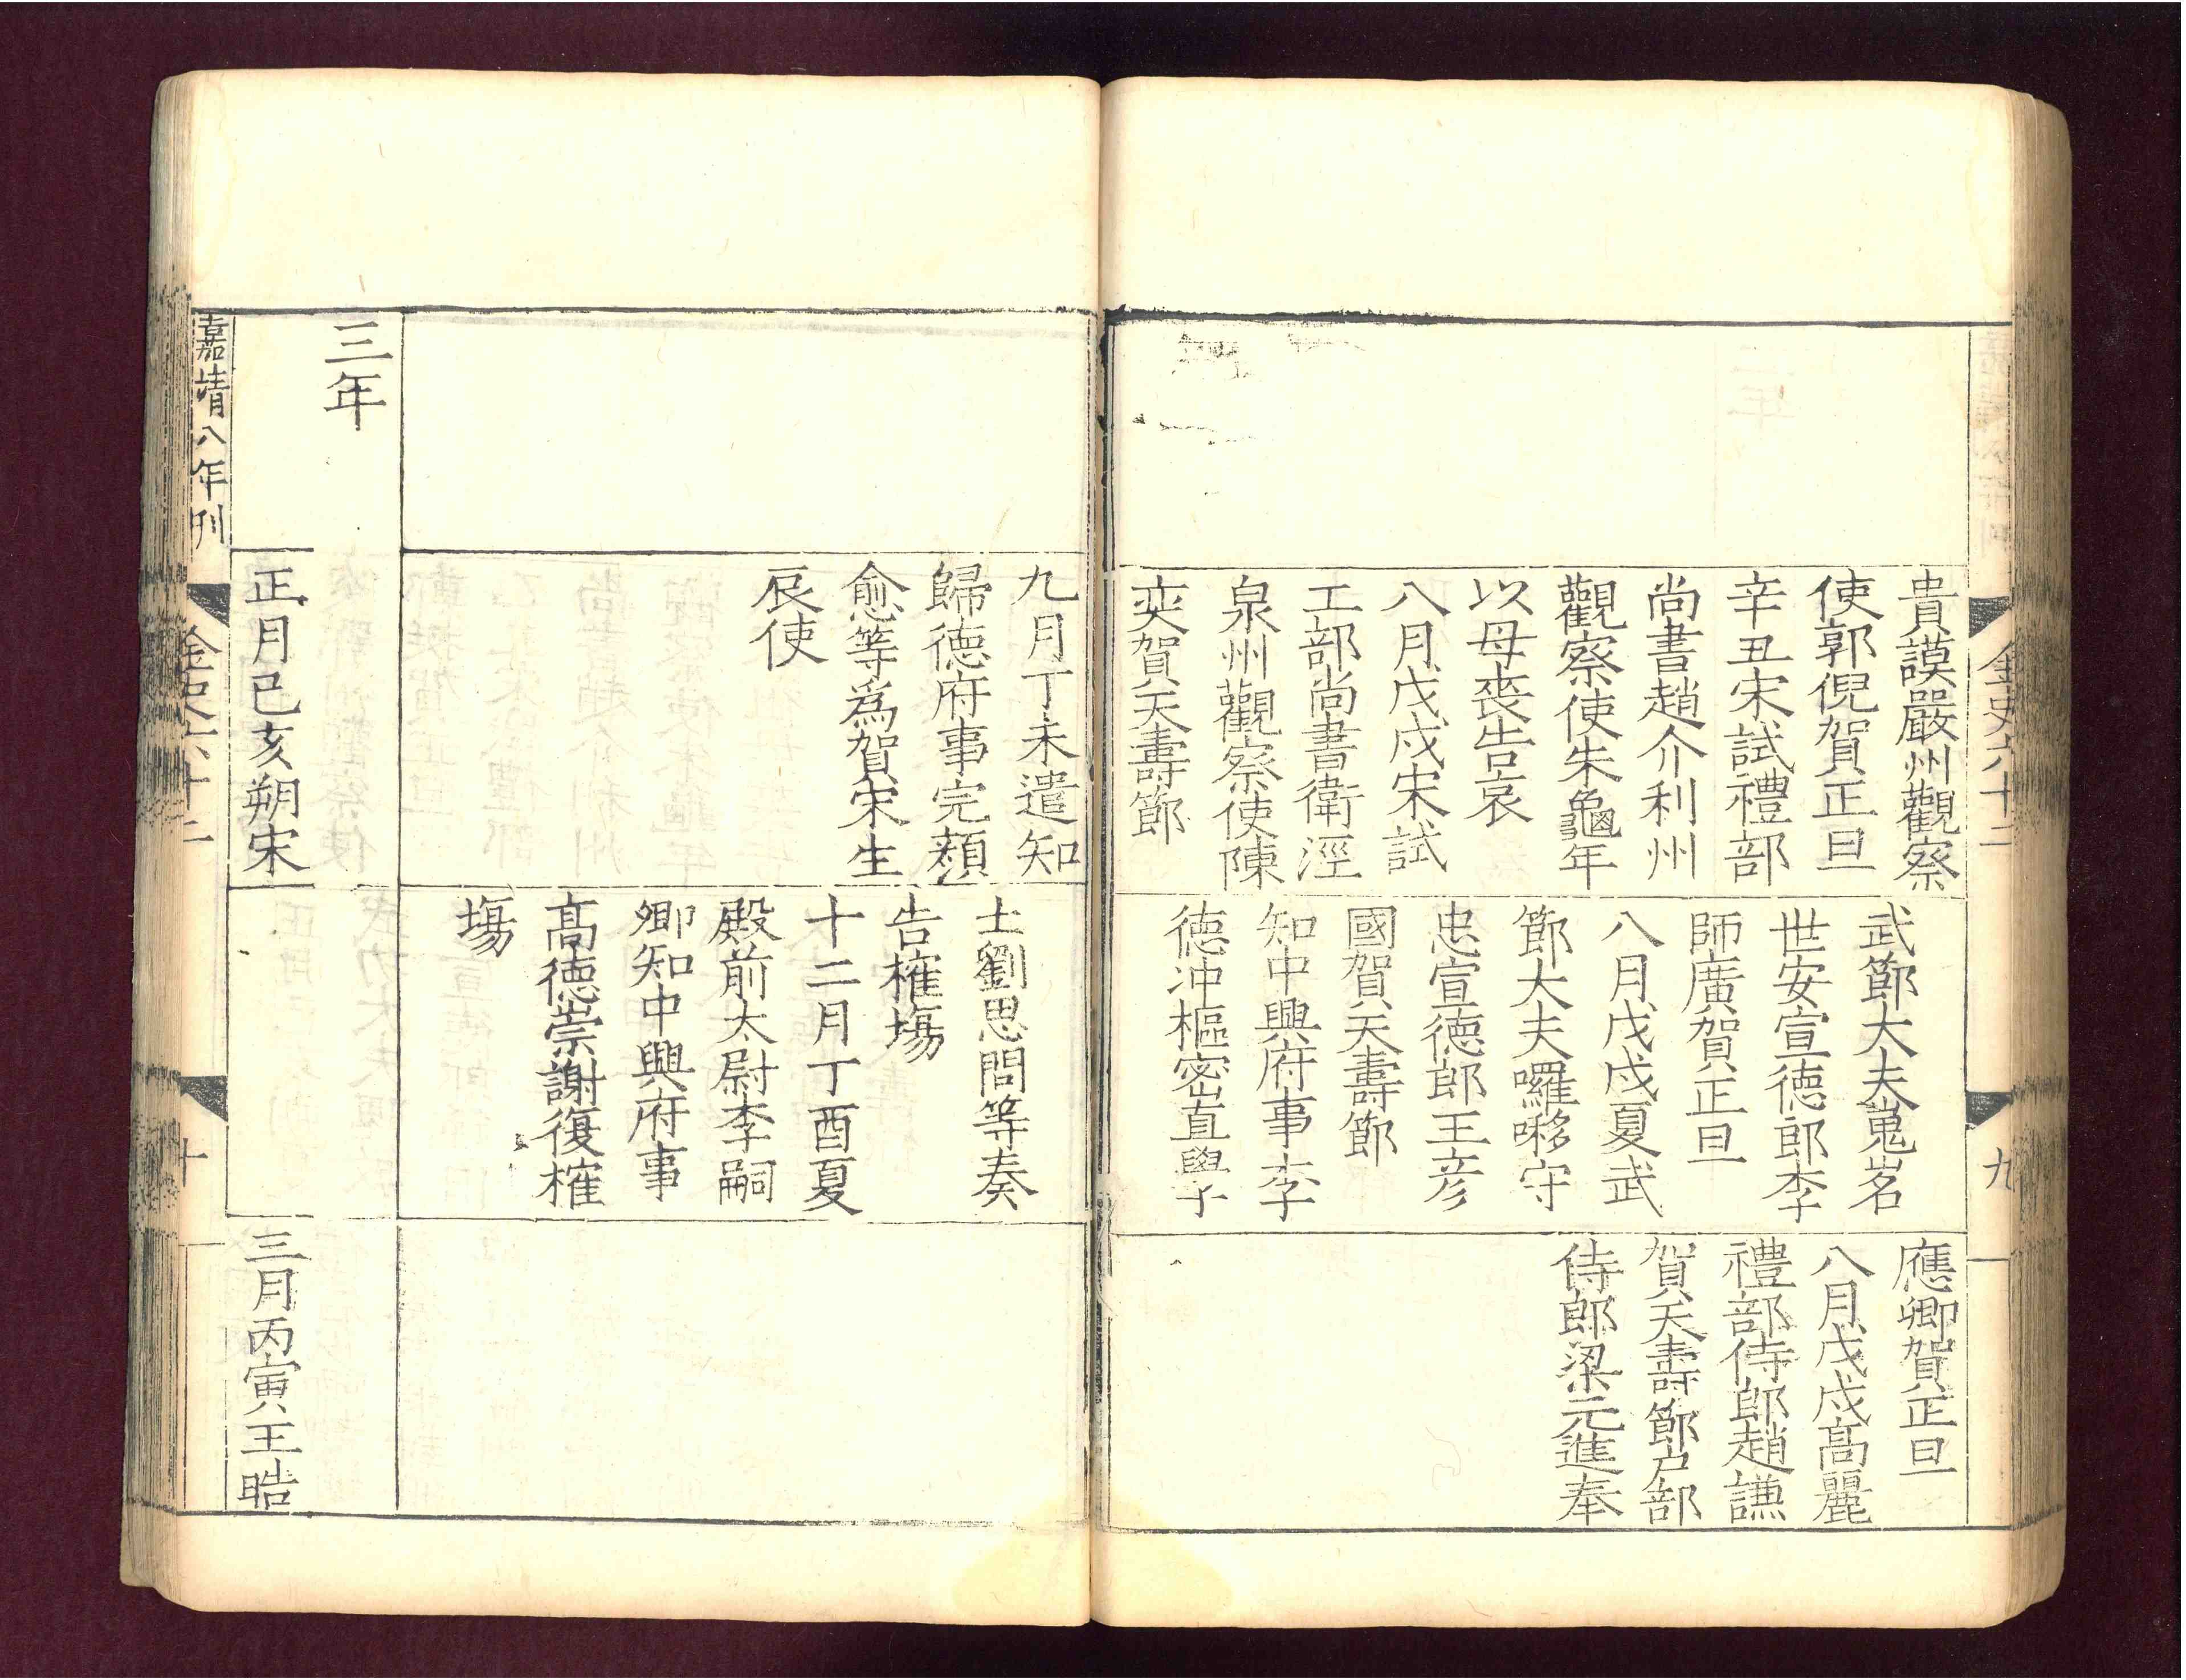 金史六十二
九
貴謨嚴州觀察
使郭倪賀正旦
辛丑宋試禮部
尚書趙介利州
觀察使朱龜年
以母喪告哀
八月戊戌宋試
工部尚書衛涇
泉州觀察使陳
奕賀天壽節
武節大夫嵬名
世安宣德郎李
師廣賀正旦
八月戊戌夏武
節大夫囉㖼守
忠宣德郎王彦
國賀天壽節
知中興府事李
德冲樞密直學
應卿賀正旦
八月戊戌髙麗
禮部侍郎趙謙
賀天壽節户部
侍郎梁元進奉
九月丁未遣知
歸德府事完顔
愈等爲賀宋生
辰使
士劉思問等奏
告榷塲
十二月丁酉夏
殿前太尉李嗣
卿知中興府事
髙德崇謝復榷
塲
三年
正月己亥朔宋
三月丙寅王晧
嘉靖八年刋
金史六十二
十